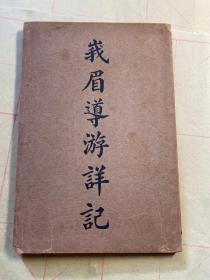 峩眉導游詳記